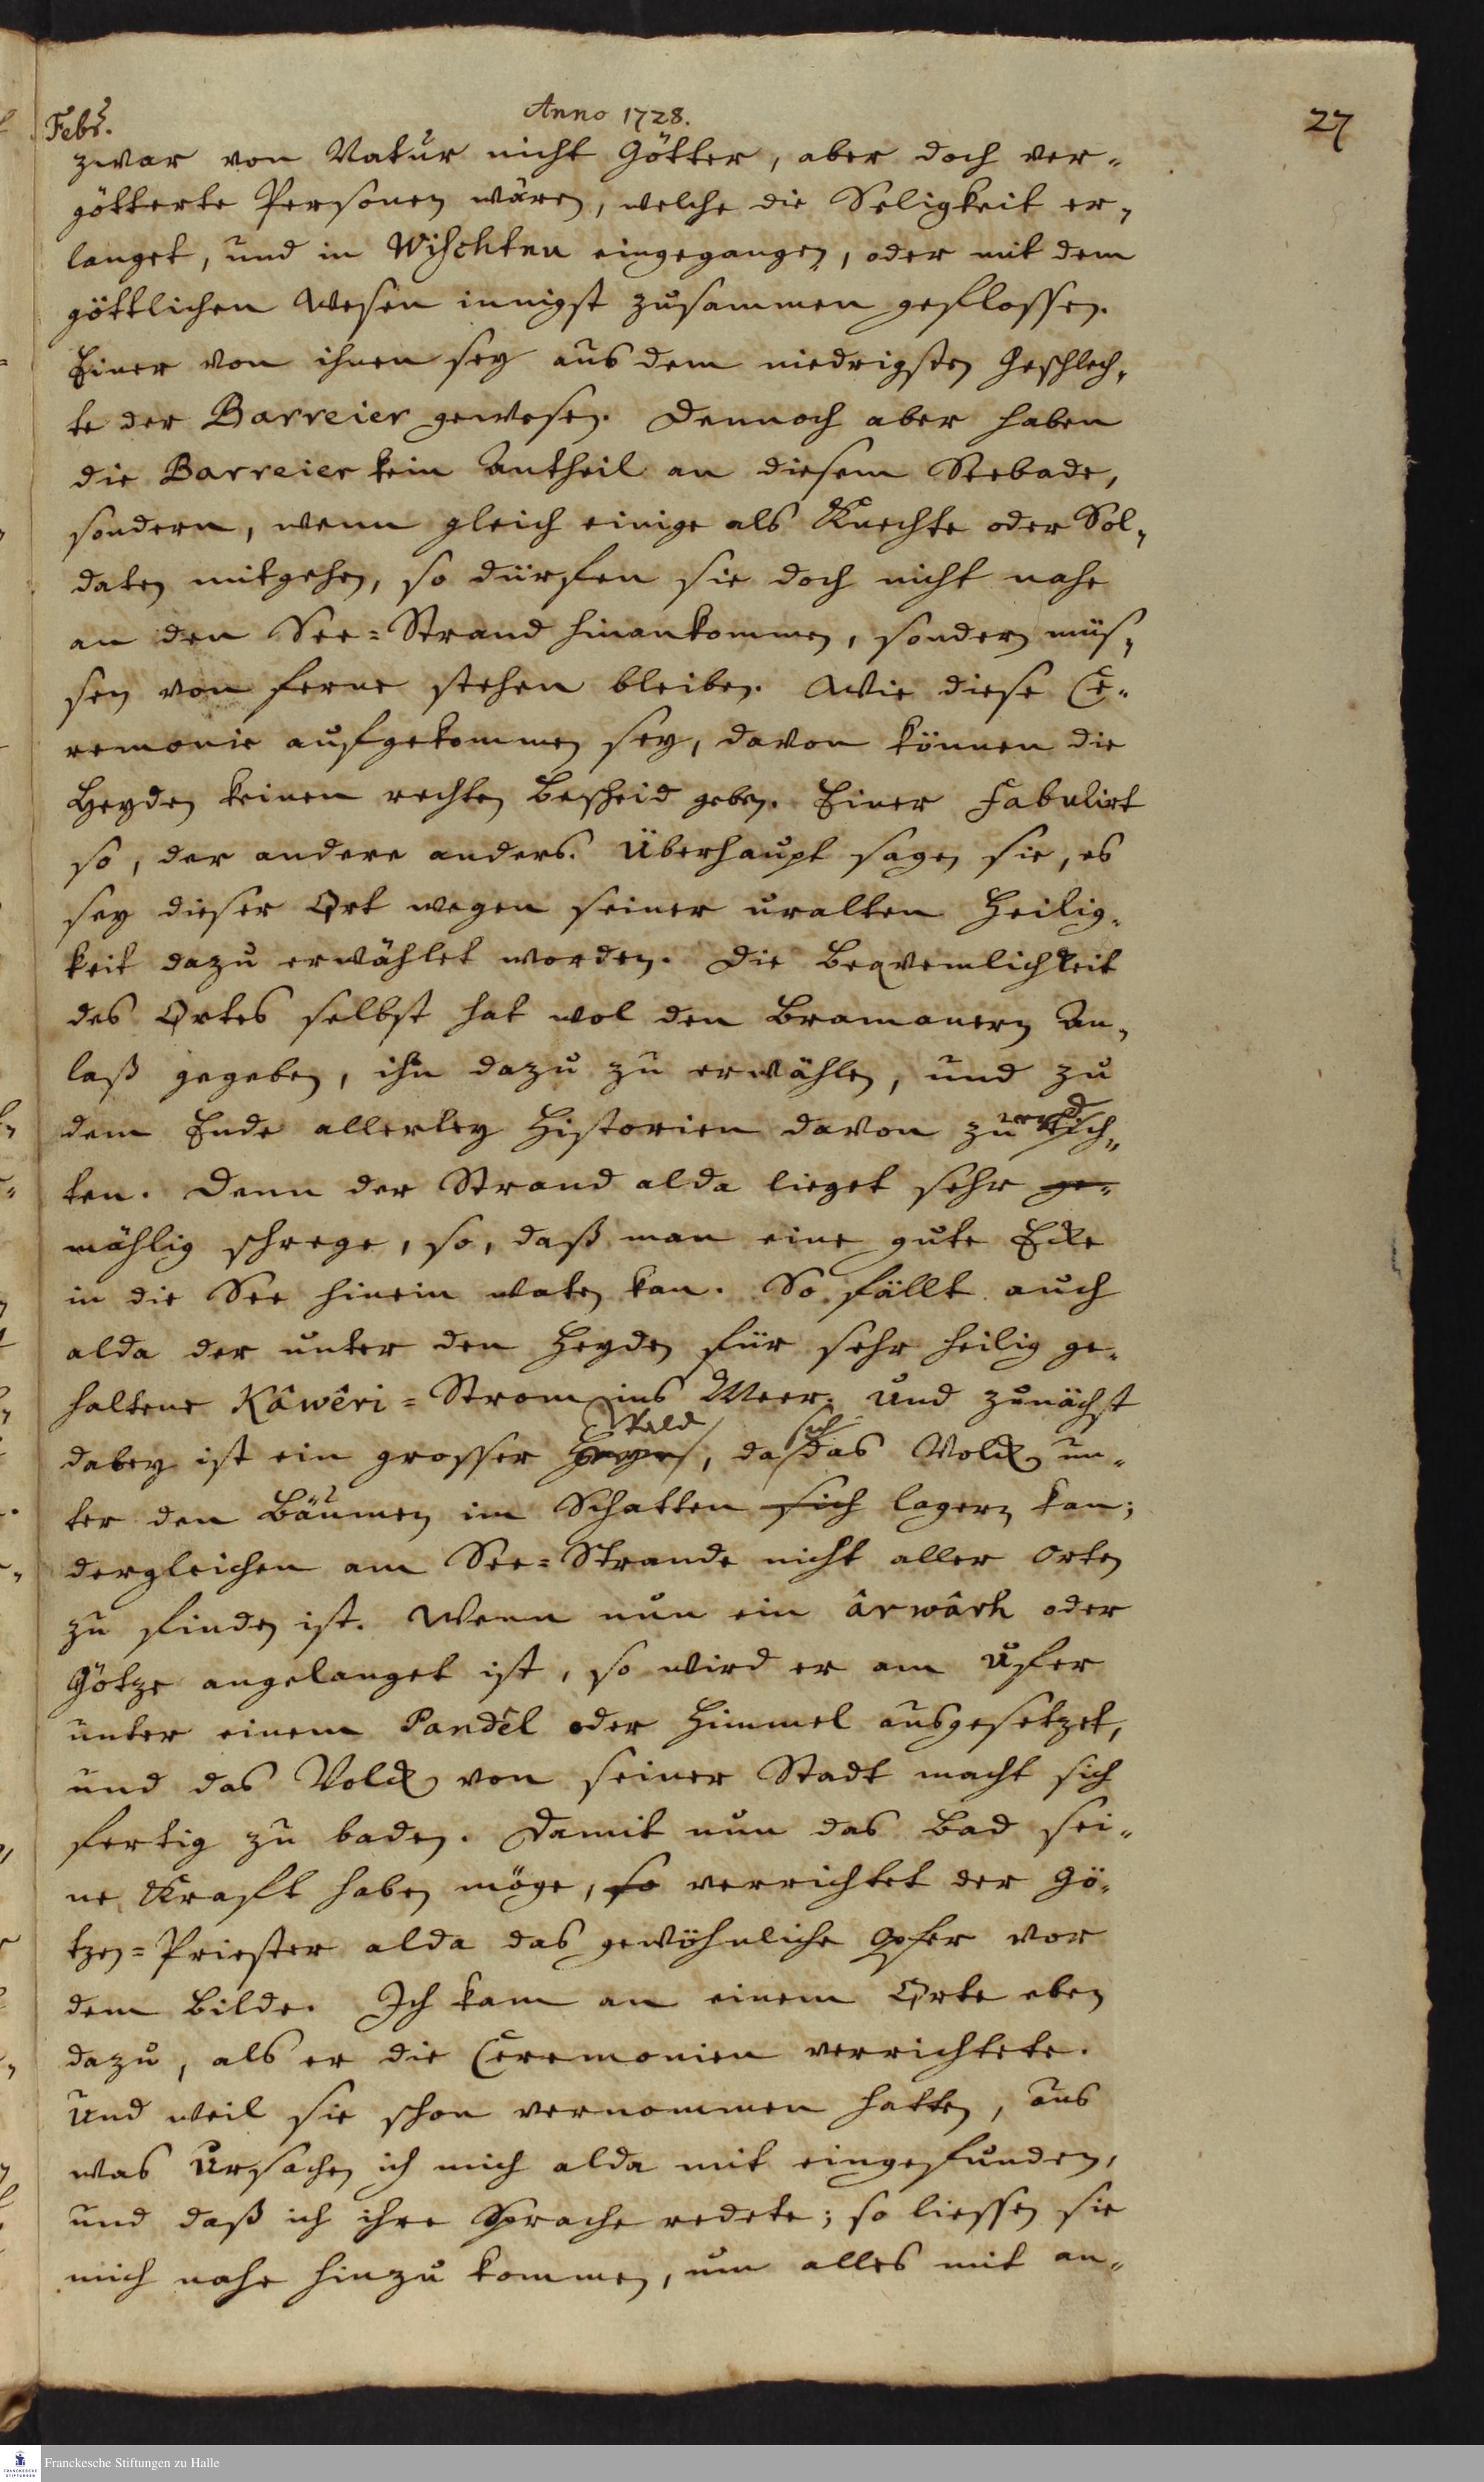 Anno 1728.
27
Febr.
zwar von Natur nicht Götter, aber doch ver-
götterte Personen wären, welche die Seligkeit er-
langet, und in Wischtnu eingegangen, oder mit dem
göttlichen Wesen innigst zusammen geflossen.
Einer von ihnen sey aus dem niedrigsten Geschlech-
te der Barreier gewesen. Dennoch aber haben
die Barreier kein Antheil an diesem Seebade,
sondern, wenn gleich einige als Knechte oder Sol-
daten mitgehen, so dürfen sie doch nicht nahe
an den See-Strand hinankommen, sondern müs-
sen von ferne stehen bleiben. Wie diese Ce-
remonie aufgekommen sey, davon können die
Heyden keinen rechten Bescheid geben. Einer fabulirt
so, der andere anders. Überhaupt sagen sie, es
sey dieser Ort wegen seiner uralten Heilig-
keit dazu erwählet worden. Die Beqvemlichkeit
des Ortes selbst hat wol den Bramanern An-
laß gegeben, ihn dazu zu erwählen, und zu
dem Ende allerley Historien davon zu erdich-
ten. Denn der Strand alda lieget sehr ge-
mählig schrege, so, daß man eine gute Ecke
in die See hinein waten kan. So fällt auch
alda der unter den Heyden für sehr heilig ge-
haltene Kâwêri-Strom ins Meer. Und zunächst
Wald sich
dabey ist ein grosser, da das Volck un-
ter den Bäumen im Schatten sich lagern kan;
dergleichen am See-Strande nicht aller Orten
zu finden ist. Wenn nun ein ârwârh oder
Götze angelanget ist, so wird er am Ufer
unter einem Pandêl oder Himmel ausgesetzet,
und das Volck von seiner Stadt macht sich
fertig zu baden. Damit nun das Bad sei-
ne Krafft haben möge, so verrichtet der Gö-
tzen-Priester alda das gewöhnliche Opfer vor
dem Bilde. Ich kam an einem Orte eben
dazu, als er die Ceremonien verrichtete.
Und weil sie schon vernommen hatten, aus
was Ursachen ich mich alda mit eingefunden,
und daß ich ihre Sprache redete; so liessen sie
mich nahe hinzu kommen, um alles mit an-
Franckesche Stiftungen zu Halle